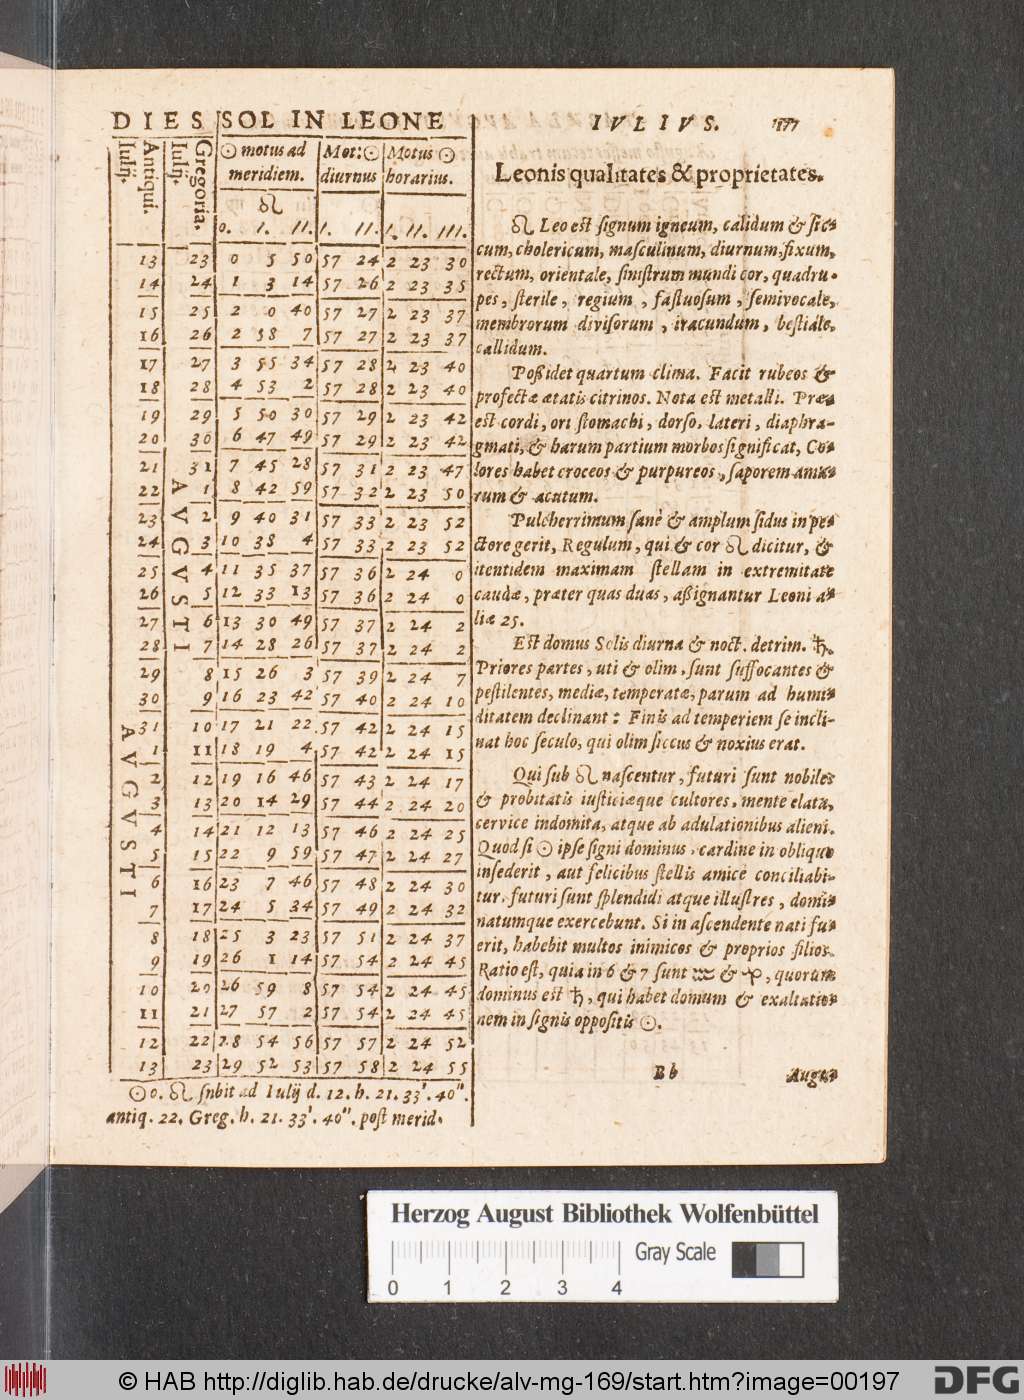 DIES SOL IN LEONE
Antiqui. Iulij.
Gregoria. Iulij.
☉ motus ad meridiem.
Mot: ☉ diurnus
Motus ☉ horarius.
♌
0. I. II. I. II. I. II. III.
13 23 0 5 50 57 24 2 23 30
14 24 1 3 14 57 26 2 23 35
15 25 2 0 40 57 27 2 23 37
16 26 2 58 7 57 27 2 23 37
17 27 3 55 34 57 28 2 23 40
18 28 4 53 2 57 28 2 23 40
19 29 5 50 30 57 29 2 23 42
20 30 6 47 49 57 29 2 23 42
21 31 7 45 28 57 31 2 23 47
22 1 8 42 59 57 32 2 23 50
23 2 9 40 31 57 33 2 23 52
24 3 10 38 4 57 33 2 23 52
25 4 11 35 37 57 36 2 24 0
26 5 12 33 13 57 36 2 24 0
27 6 13 30 49 57 37 2 24 2
28 7 14 28 26 57 37 2 24 2
29 8 15 26 3 57 39 2 24 7
30 9 16 23 42 57 40 2 24 10
31 10 17 21 22 57 42 2 24 15
1 11 18 19 4 57 42 2 24 15
2 12 19 16 46 57 43 2 24 17
3 13 20 14 29 57 44 2 24 20
4 14 21 12 13 57 46 2 24 25
5 15 22 9 59 57 47 2 24 27
6 16 23 7 46 57 48 2 24 30
7 17 24 5 34 57 49 2 24 32
8 18 25 3 23 57 51 2 24 37
9 19 26 1 14 57 54 2 24 45
10 20 26 59 8 57 54 2 24 45
11 21 27 57 2 57 54 2 24 45
12 22 28 54 56 57 57 2 24 52
13 23 29 52 53 57 58 2 24 55
AVGVSTI
AVGVSTI
☉ 0. ♌ subit ad Iulij d. 12. h. 21. 33'. 40''.
antiq. 22. Greg. h. 21. 33'. 40''. post merid.
IVLIVS.
Leonis qualitates & proprietates.
♌ Leo est signum igneum, calidum & sic-
cum, cholericum, masculinum, diurnum, fixum,
rectum, orientale, sinistrum mundi cor, quadru-
pes, sterile, regium, fastuosum, semivocale,
membrorum divisorum, iracundum, bestiale,
callidum.
Poßidet quartum clima. Facit rubeos &
profectæ ætatis citrinos. Nota est metalli. Præ-
est cordi, ori stomachi, dorso, lateri, diaphra-
gmati, & harum partium morbos significat, Co-
lores habet croceos & purpureos, saporem ama-
rum & acutum.
Pulcherrimum sanè & amplum sidus in pe-
ctore gerit, Regulum, qui & cor ♌ dicitur, &
itentidem maximam stellam in extremitate
caudæ, præter quas duas, aßignantur Leoni a-
liæ 25.
Est domus Solis diurna & noct. detrim. ♄.
Priores partes, uti & olim, sunt suffocantes &
pestilentes, mediæ, temperatæ, parum ad humi-
ditatem declinant: Finis ad temperiem se incli-
nat hoc seculo, qui olim siccus & noxius erat.
Qui sub ♌ nascentur, futuri sunt nobiles
& probitatis iusticiæque cultores, mente elata,
cervice indomita, atque ab adulationibus alieni.
Quòd si ☉ ipse signi dominus, cardine in obliquo
insederit, aut felicibus stellis amicè conciliabi-
tur, futuri sunt splendidi atque illustres, domi-
natumque exercebunt. Si in ascendente nati fu-
erit, habebit multos inimicos & proprios filios.
Ratio est, quia in 6 & 7 sunt ♒ & ♑, quorum
dominus est ♄, qui habet domum & exaltatio-
nem in signis oppositis ☉.
Bb
August
Herzog August Bibliothek Wolfenbüttel
Gray Scale
0 1 2 3 4
© HAB http://diglib.hab.de/drucke/alv-mg-169/start.htm?image=00197
DFG